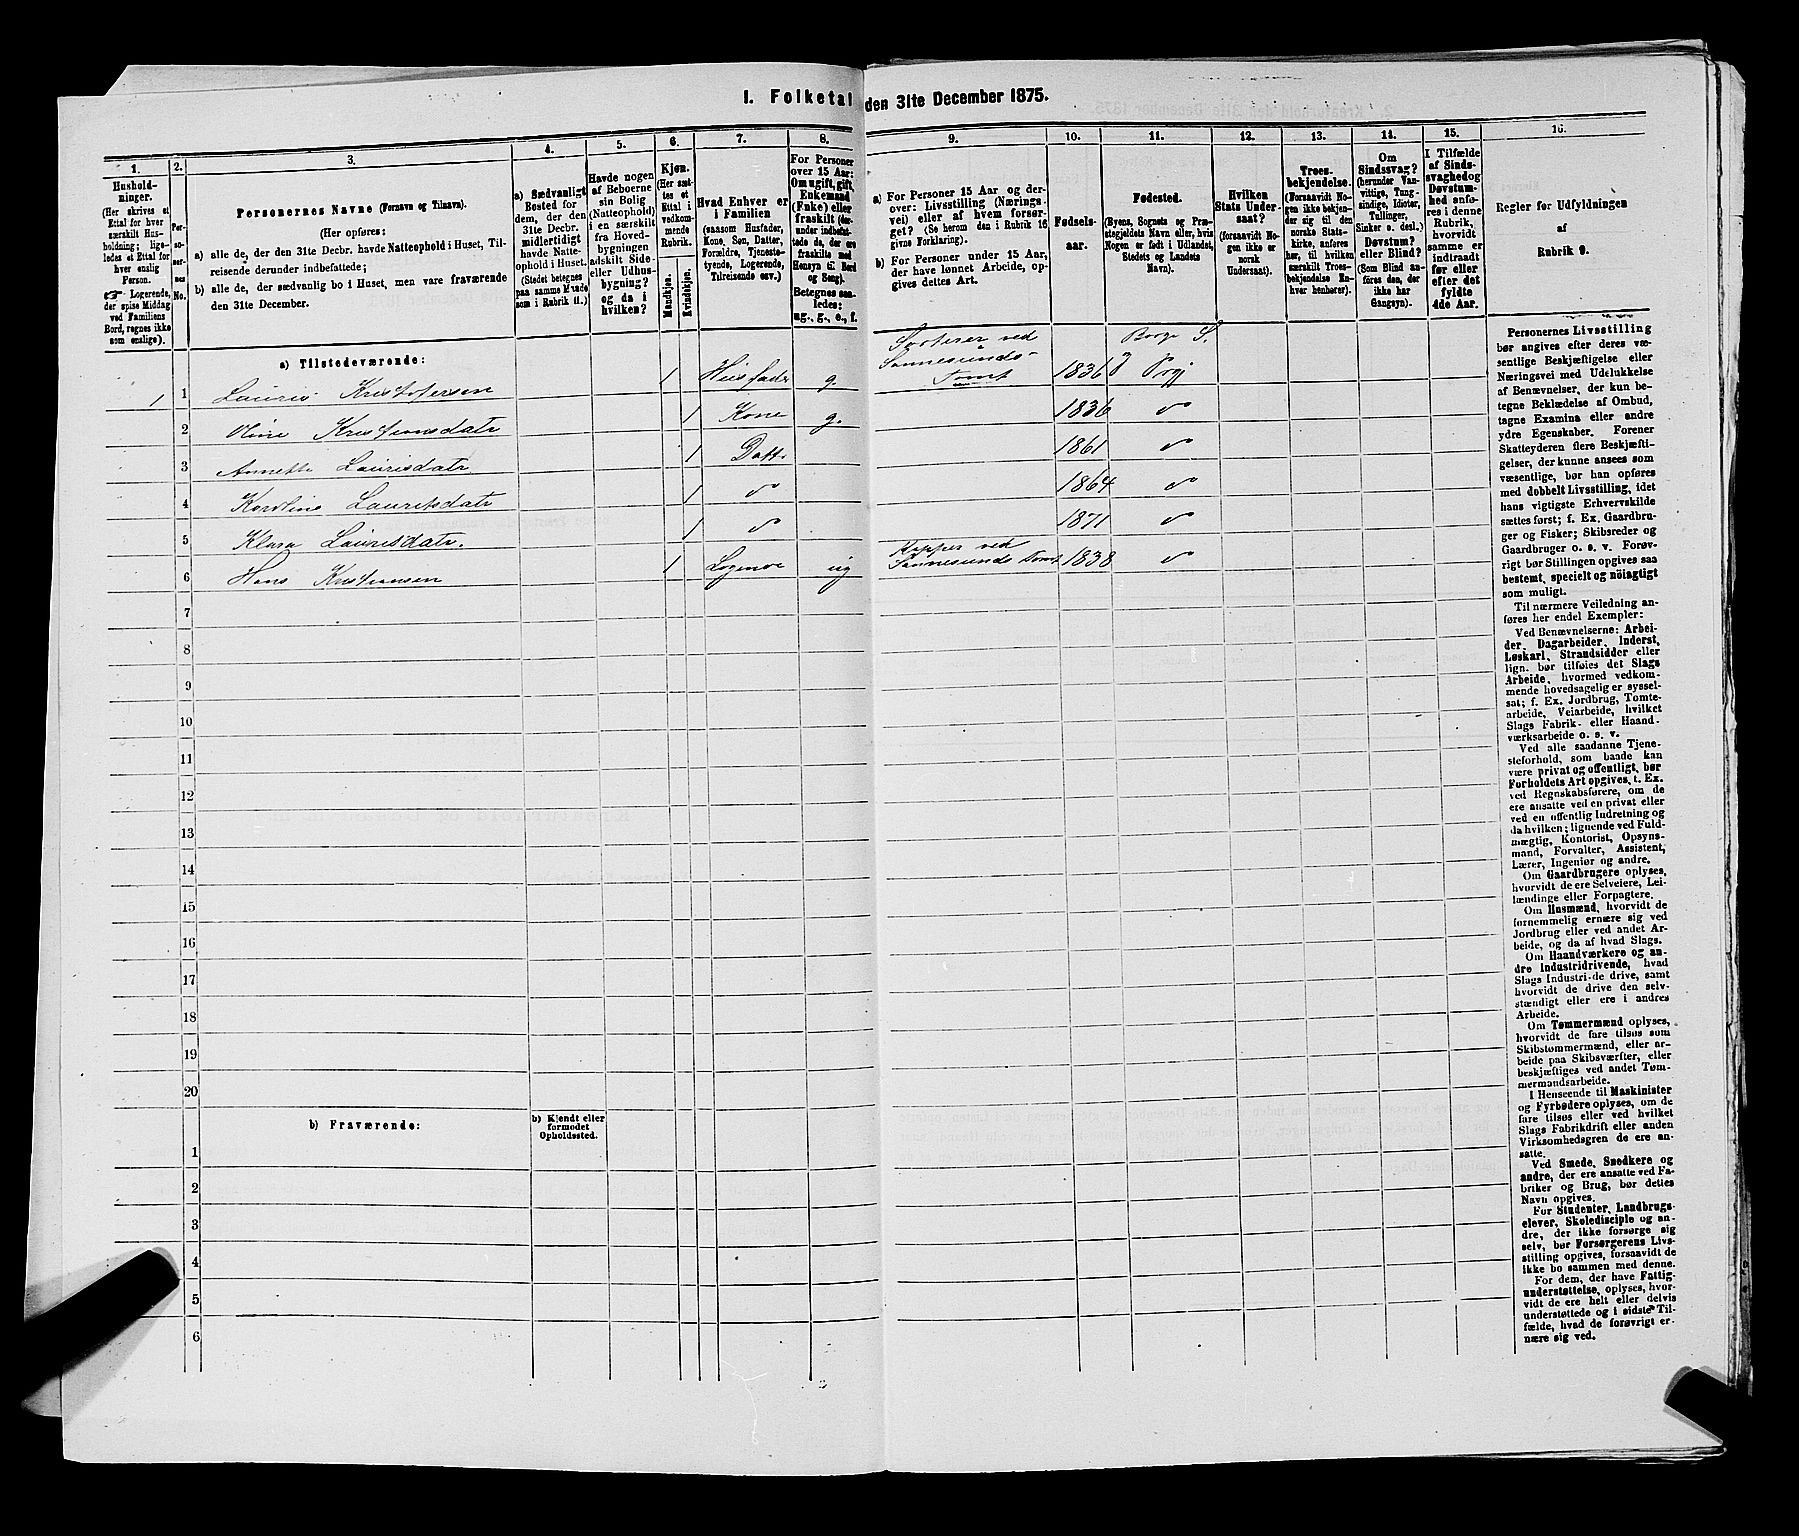 I. Folketal den 31te December 1875.
1.
Hushold-
ninger.
(Her skrives et
Ettal for hver
særskilt Hus-
holdning; lige-
ledes et Ettal for
hver enslig
Person.
☞ Logerende,
der spise Middag
ved Familiens
Bord, regnes ikke
som enslige).
2.
Per-
so-
ner-
nes
No.
3.
Personernes Navne (Fornavn og Tilnavn).
(Her opføres:
a) alle de, der den 31te Decbr. havde Natteophold i Huset, Til-
reisende derunder indbefattede;
b) alle de, der sædvanlig bo i Huset, men vare fraværende
den 31te December.
4.
a) Sædvanligt
Bosted for
dem, der den
31te Decbr.
midlertidigt
havde Natte-
ophold i Huset.
(Stedet betegnes
paa samme Maade
som i Rubrik 11.)
5.
Havde nogen
af Beboerne
sin Bolig
(Natteophold)
i en særskilt
fra Hoved-
bygningen
adskilt Side-
eller Udhus-
bygning?
og da i
hvilken?
6.
Kjøn.
(Her sæt-
tes et
Ettal i
vedkom-
mende
Rubrik.
Mandkjøn.
Kvindekjøn.
7.
Hvad Enhver er
i Familien
(saasom Husfader,
Kone, Søn, Datter,
Forældre, Tjeneste-
tyende, Logerende,
Tilreisende osv.)
8.
For Personer
over 15 Aar:
Om ugift, gift,
Enkemand
(Enke) eller
fraskilt (der-
under indbefat-
tede de, der ere
fraskilte med
Hensyn til Bord
og Seng).
Betegnes saa-
ledes:
ug., g., e., f.
9.
a) For Personer 15 Aar og der-
over: Livsstilling (Nærings-
vei) eller af hvem forsør-
get? (Se herom den i Rubrik 16
givne Forklaring).
b) For Personer under 15 Aar,
der have lønnet Arbeide, op-
gives dettes Art.
10.
Fødsels-
aar.
11.
Fødested.
(Byens, Sognets og Præ-
stegjeldets Navn eller, hvis
Nogen er født i Udlandet,
Stedets og Landets
Navn).
12.
Hvilken
Stats Under-
saat?
(forsaavidt No-
gen ikke er
norsk
Undersaat).
13.
Troes-
bekjendelse.
(Forsaavidt No-
gen ikke bekjen-
der sig til den
norske Stats-
kirke, anføres
her, til hvilken
særskilt Troes-
bekjendelse En-
hver henhører).
14.
Om
Sindssvag?
(herunder Van-
vittige, Tung-
sindige, Idioter,
Tullinger,
Sinker o. desl.)
Døvstum?
eller Blind?
(Som Blind an-
føres den, der
ikke har
Gangsyn).
15.
I Tilfælde
af Sinds-
svaghed og
Døvstum-
hed anfø-
res i denne
Rubrik,
hvorvidt
samme er
indtraadt
før eller
efter det
fyldte
4de Aar.
16.
Regler for Udfyldningen
af
Rubrik 9.
a) Tilstedeværende:
1 1 Lauris Kristofersen 1 Husfader g. Sorterer ved Sannesunds- Tomt 1836 Borge S. Prgj
2 Oline Kristiansdatr 1 Kone g. 1836 〃
3 Annette Laurisdatr. 1 Datt. 1861 〃
4 Karoline Lauritsdatr 1 〃 1864 〃
5 Klara Laurisdatr. 1 〃 1871 〃
6 Hans Kristiansen 1 Logerende ug ved Sannesunds Tomt 1838 〃
7
8
9
10
11
12
13
14
15
16
17
18
19
20
b) Fraværende:
b) Kjendt eller
formodet
Opholdssted.
1
2
3
4
5
6
Personernes Livsstilling
bør angives efter deres væ-
sentlige Beskjæftigelse eller
Næringsvei med Udelukkelse
af Benævnelser, der kun be-
tegne Beklædelse af Ombud,
tagne Examina eller andre
ydre Egenskaber. Forener
Skatteyderen flere Beskjæfti-
gelser, der kunne ansees som
væsentlige, bør han opføres
med dobbelt Livsstilling, idet
hans vigtigste Erhvervskilde
sættes først; f. Ex. Gaardbru-
ger og Fisker; Skibsreder og
Gaardbruger o. s. v. Forøv-
rigt bør Stillingen opgives saa
bestemt, specielt og nöiagtigt
som muligt.
Til nærmere Veiledning an-
føres her endel Exempler:
Ved Benævnelserne: Arbei-
der, Dagarbeider, Inderst,
Løskarl, Strandsidder eller
lign. bør tilføies det Slags
Arbeide, hvormed vedkom-
mende hovedsagelig er syssel-
sat; f. Ex. Jordbrug, Tomte-
arbeide, Veiarbeide, hvilket
Slags Fabrik- eller Haand-
værksarbeide o. s. v.
Ved alle saadanne Tjene-
steforhold, som baade kan
være privat og offentligt, bør
Forholdets Art opgives, t. Ex.
ved Regnskabsførere, om de
ere ansatte ved en privat eller
ved en offentlig Indretning og
da hvilken; lignende ved Fuld-
mægtig, Kontorist, Opsyns-
mand, Forvalter, Assistent,
Lærer, Ingeniør og andre.
Om Gaardbrugere oplyses,
hvorvidt de ere Selveiere, Lei-
lændinge eller Forpagtere.
Om Husmænd, hvorvidt de
fornemmelig ernære sig ved
Jordbrug eller ved andet Ar-
beide, og da af hvad Slags.
Om Haandværkere og an-
dre Industridrivende, hvad
Slags Industri de drive, samt
hvorvidt de drive den selv-
stændigt eller ere i andres
Arbeide.
Om Tømmermænd oplyses,
hvorvidt de fare tilsøs som
Skibstømmermænd, eller ar-
beide paa Skibsværfter, eller
beskjæftiges ved andet Tøm-
mermandsarbeide.
I Henseende til Maskinister
og Fyrbødere oplyses, om de
fare tilsøs eller ved hvilket
Slags Fabrikdrift eller anden
Virksomhedsgren de ere an-
satte.
Ved Smede, Snedkere og
andre, der ere ansatte ved Fa-
briker og Brug, bør dettes
Navn opgives.
For Studenter, Landbrugs-
elever, Skoledisciple og an-
dre, der ikke forsørge sig
selv, bør Forsørgerens Livs-
stilling opgives, forsaavidt de
ikke bo sammen med denne.
For dem, der have Fattig-
understøttelse, oplyses, hvor-
vidt de ere helt eller delvis
understøttede og i sidste Til-
fælde, hvad de forøvrigt er-
nære sig ved.